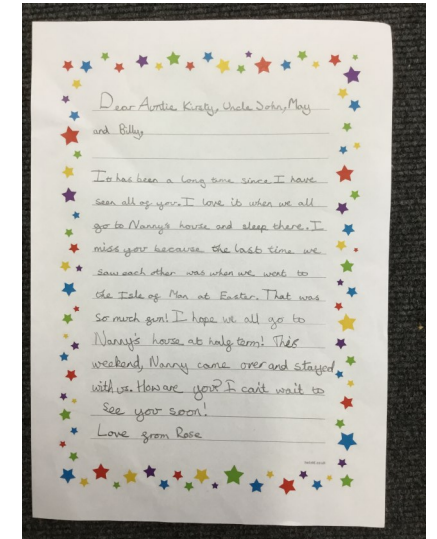 Dear Auntie Kirsty, Uncle John, May
and Billy,
It has been a long time since I have
seen all of you. I love it when we all
go to Nanny's house and sleep there. I
miss you because the last time we
saw each other was when we went to
the Isle of Man at Easter. That was
so much fun! I hope we all go to
Nanny's house at half term! This
weekend, Nanny came over and stayed
with us. How are you? I can't wait to
see you soon!
Love from Rose